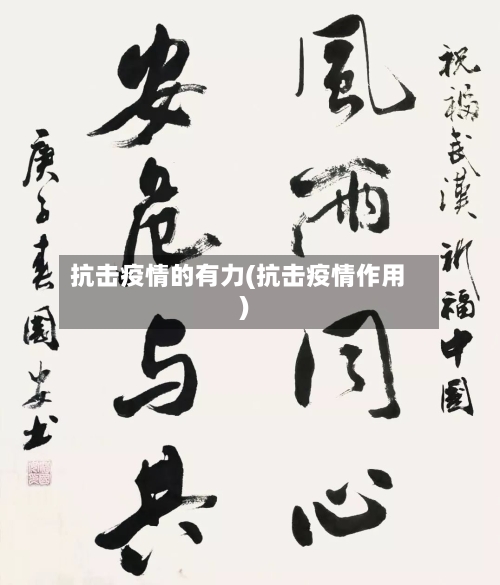 祝福武漢祈福中國
風雨同心
安危与共
庚子春國安书
抗击疫情的有力(抗击疫情作用
)